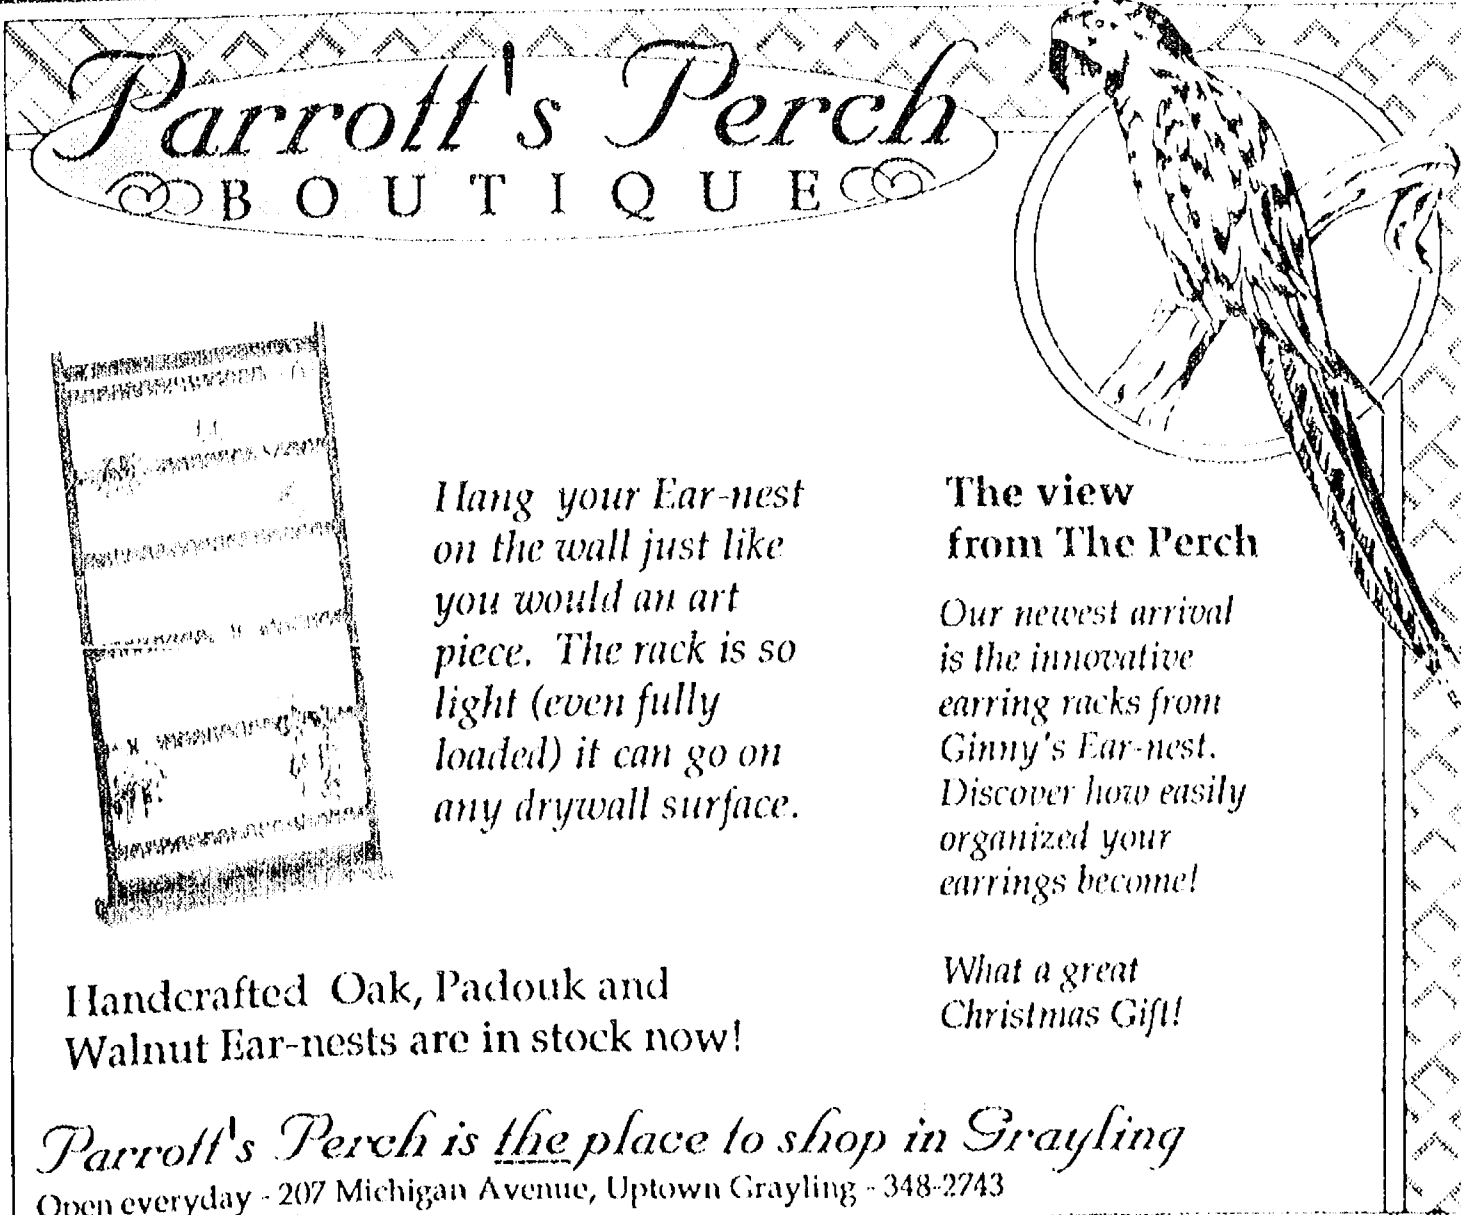 Parrott's Perch
BOUTIQUE
Hang your Ear-nest
on the wall just like
you would an art
piece. The rack is so
light (even fully
loaded) it can go on
any drywall surface.
The view
from The Perch
Our newest arrival
is the innovative
earring racks from
Ginny's Ear-nest.
Discover how easily
organized your
earrings become!
What a great
Christmas Gift!
Handcrafted Oak, Padouk and
Walnut Ear-nests are in stock now!
Parrott's Perch is the place to shop in Grayling
Open everyday - 207 Michigan Avenue, Uptown Grayling - 348-2743